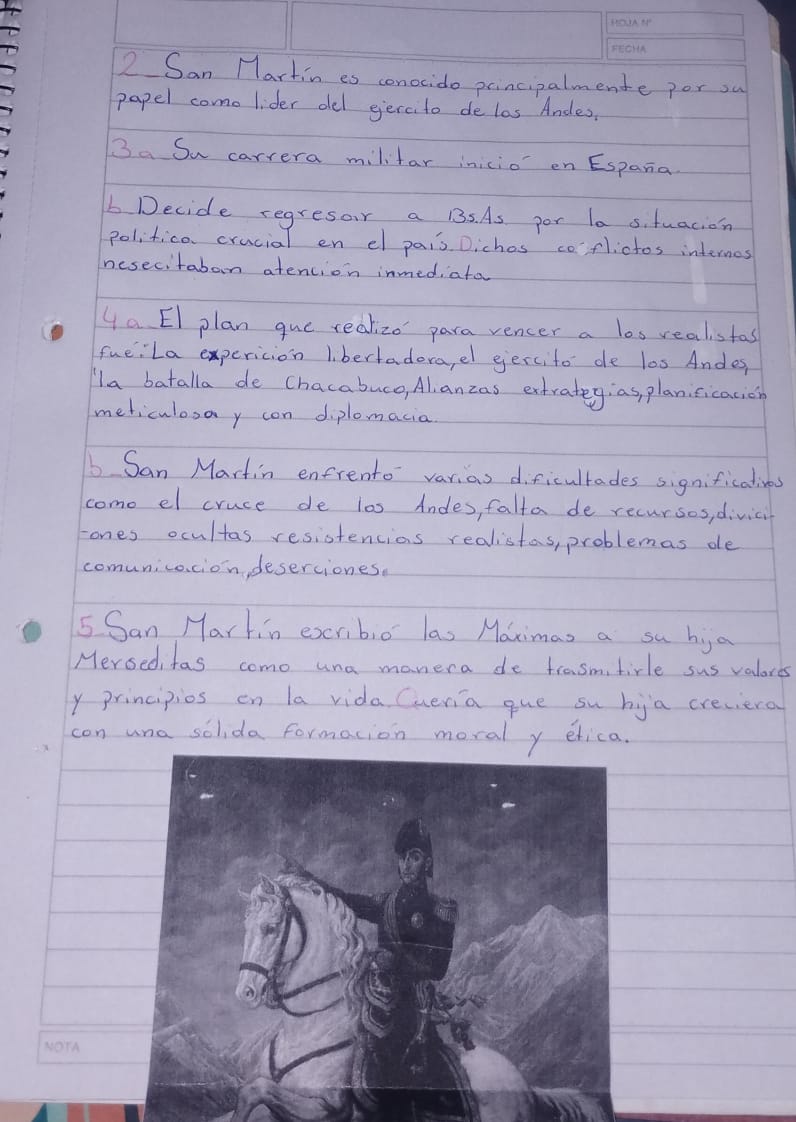 HOJA N°
FECHA
2_ San Martín es conocido principalmente por su
papel como lider del ejercito de los Andes.
3a_ Su carrera militar inició en España.
b_ Decide regresar a Bs.As. por la situación
politica crucial en el país. Dichos coflictos internos
nesecitaban atención inmediata
4a_ El plan que realizó para vencer a los realistas
fue: La expericion libertadora, el ejercito de los Andes,
la batalla de Chacabuco, Alianzas extrategias, planificación
meticulosa y con diplomacia.
b_ San Martín enfrentó varias dificultades significativas
como el cruce de los Andes, falta de recursos, divici
-ones ocultas resistencias realistas, problemas de
comunicación, deserciones.
5_ San Martín escribió las Máximas a su hija
Merseditas como una manera de trasmitirle sus valores
y principios en la vida. Quería que su hija creciera
con una sólida formación moral y ética.
NOTA